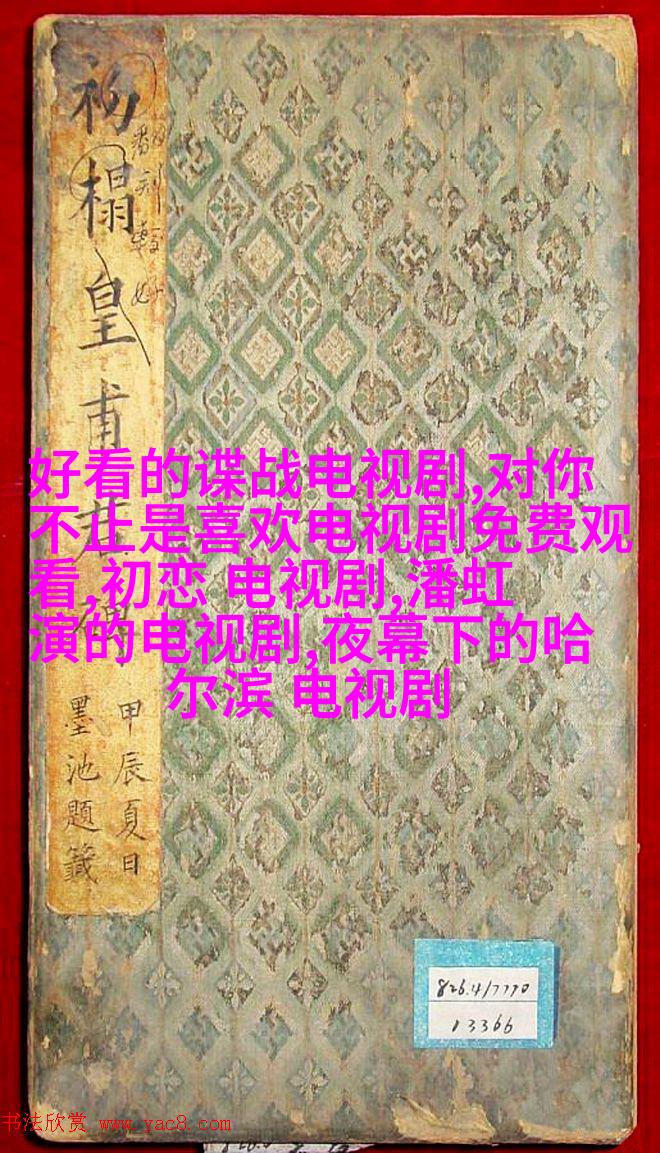 初榻皇甫君碑
甲辰夏日
墨池題籤
好看的谍战电视剧,对你
不止是喜欢电视剧免费观
看,初恋 电视剧,潘虹
演的电视剧,夜幕下的哈
尔滨 电视剧
826.4/7770
13366
书法欣赏 www.yac8.com